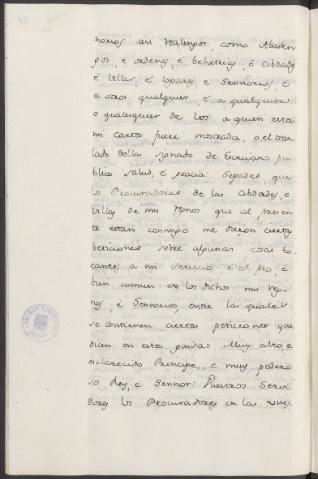 norios asi realengos, como Abaden
gos, e ordens, e behetrias, e Cibdades
e Villas, e logares, e Sennorios, e
a otros qualquier, e a qualquiera
o qualesquier de los a quien esta
mi carta fuere mostrada, o el tras
lado della signado de Escrivano pu
blico salud, e gracia. Sepades, que
los Procuradores de las Cibdades, e
Villas de mis regnos que al presen
te estan conmigo me dieron ciertas
peticiones sobre algunas cosas to
cantes a mi servicio e al pro, e
bien comun de los dichos mis reg
nos, e Sennorios, entre las quales
se contienen ciertas peticiones que
dian en esta guisa: Muy alto, e
esclarecido Principe, e muy podero
so Rey, e Sennor: Vuestros Servi
dores los Procuradores de las